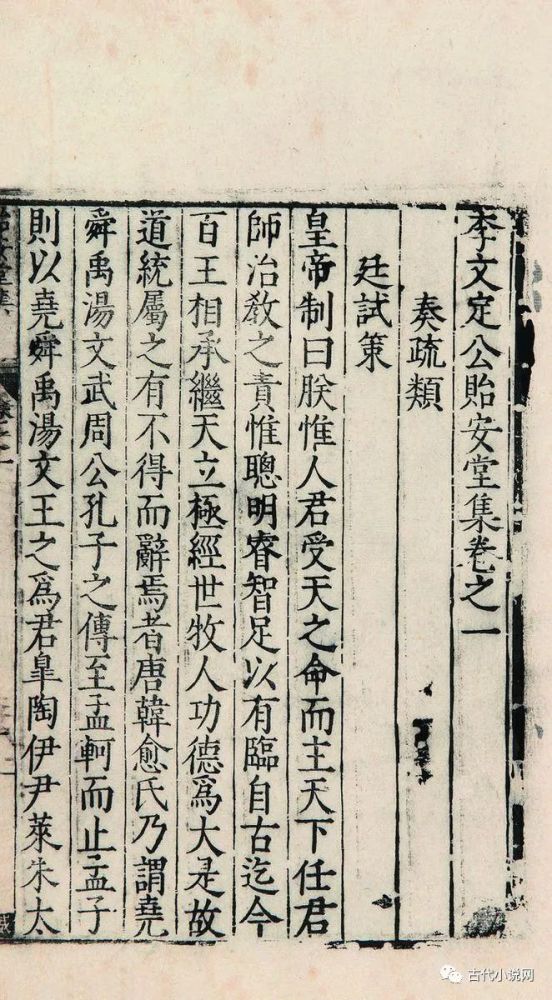 李文定公貽安堂集卷之一
奏疏類
廷試策
皇帝制曰朕惟人君受天之命而主天下任君
師治教之責惟聰明睿智足以有臨自古迄今
百王相承繼天立極經世牧人功德爲大是故
道統屬之有不得而辭焉者唐韓愈氏乃謂堯
舜禹湯文武周公孔子之傳至孟軻而止孟子
則以堯舜禹湯文王之爲君臯陶伊尹萊朱太
古代小说网